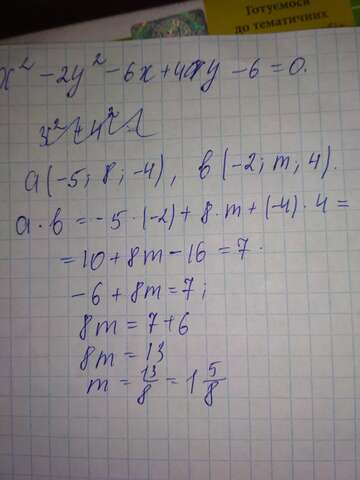 Готуємося
до тематичних
x² - 2y² - 6x + 4xy - 6 = 0.
a(-5; 8; -4), b(-2; m; 4).
a · b = -5 · (-2) + 8 · m + (-4) · 4 =
= 10 + 8m - 16 = 7.
-6 + 8m = 7;
8m = 7 + 6
8m = 13
m = 13/8 = 1 5/8